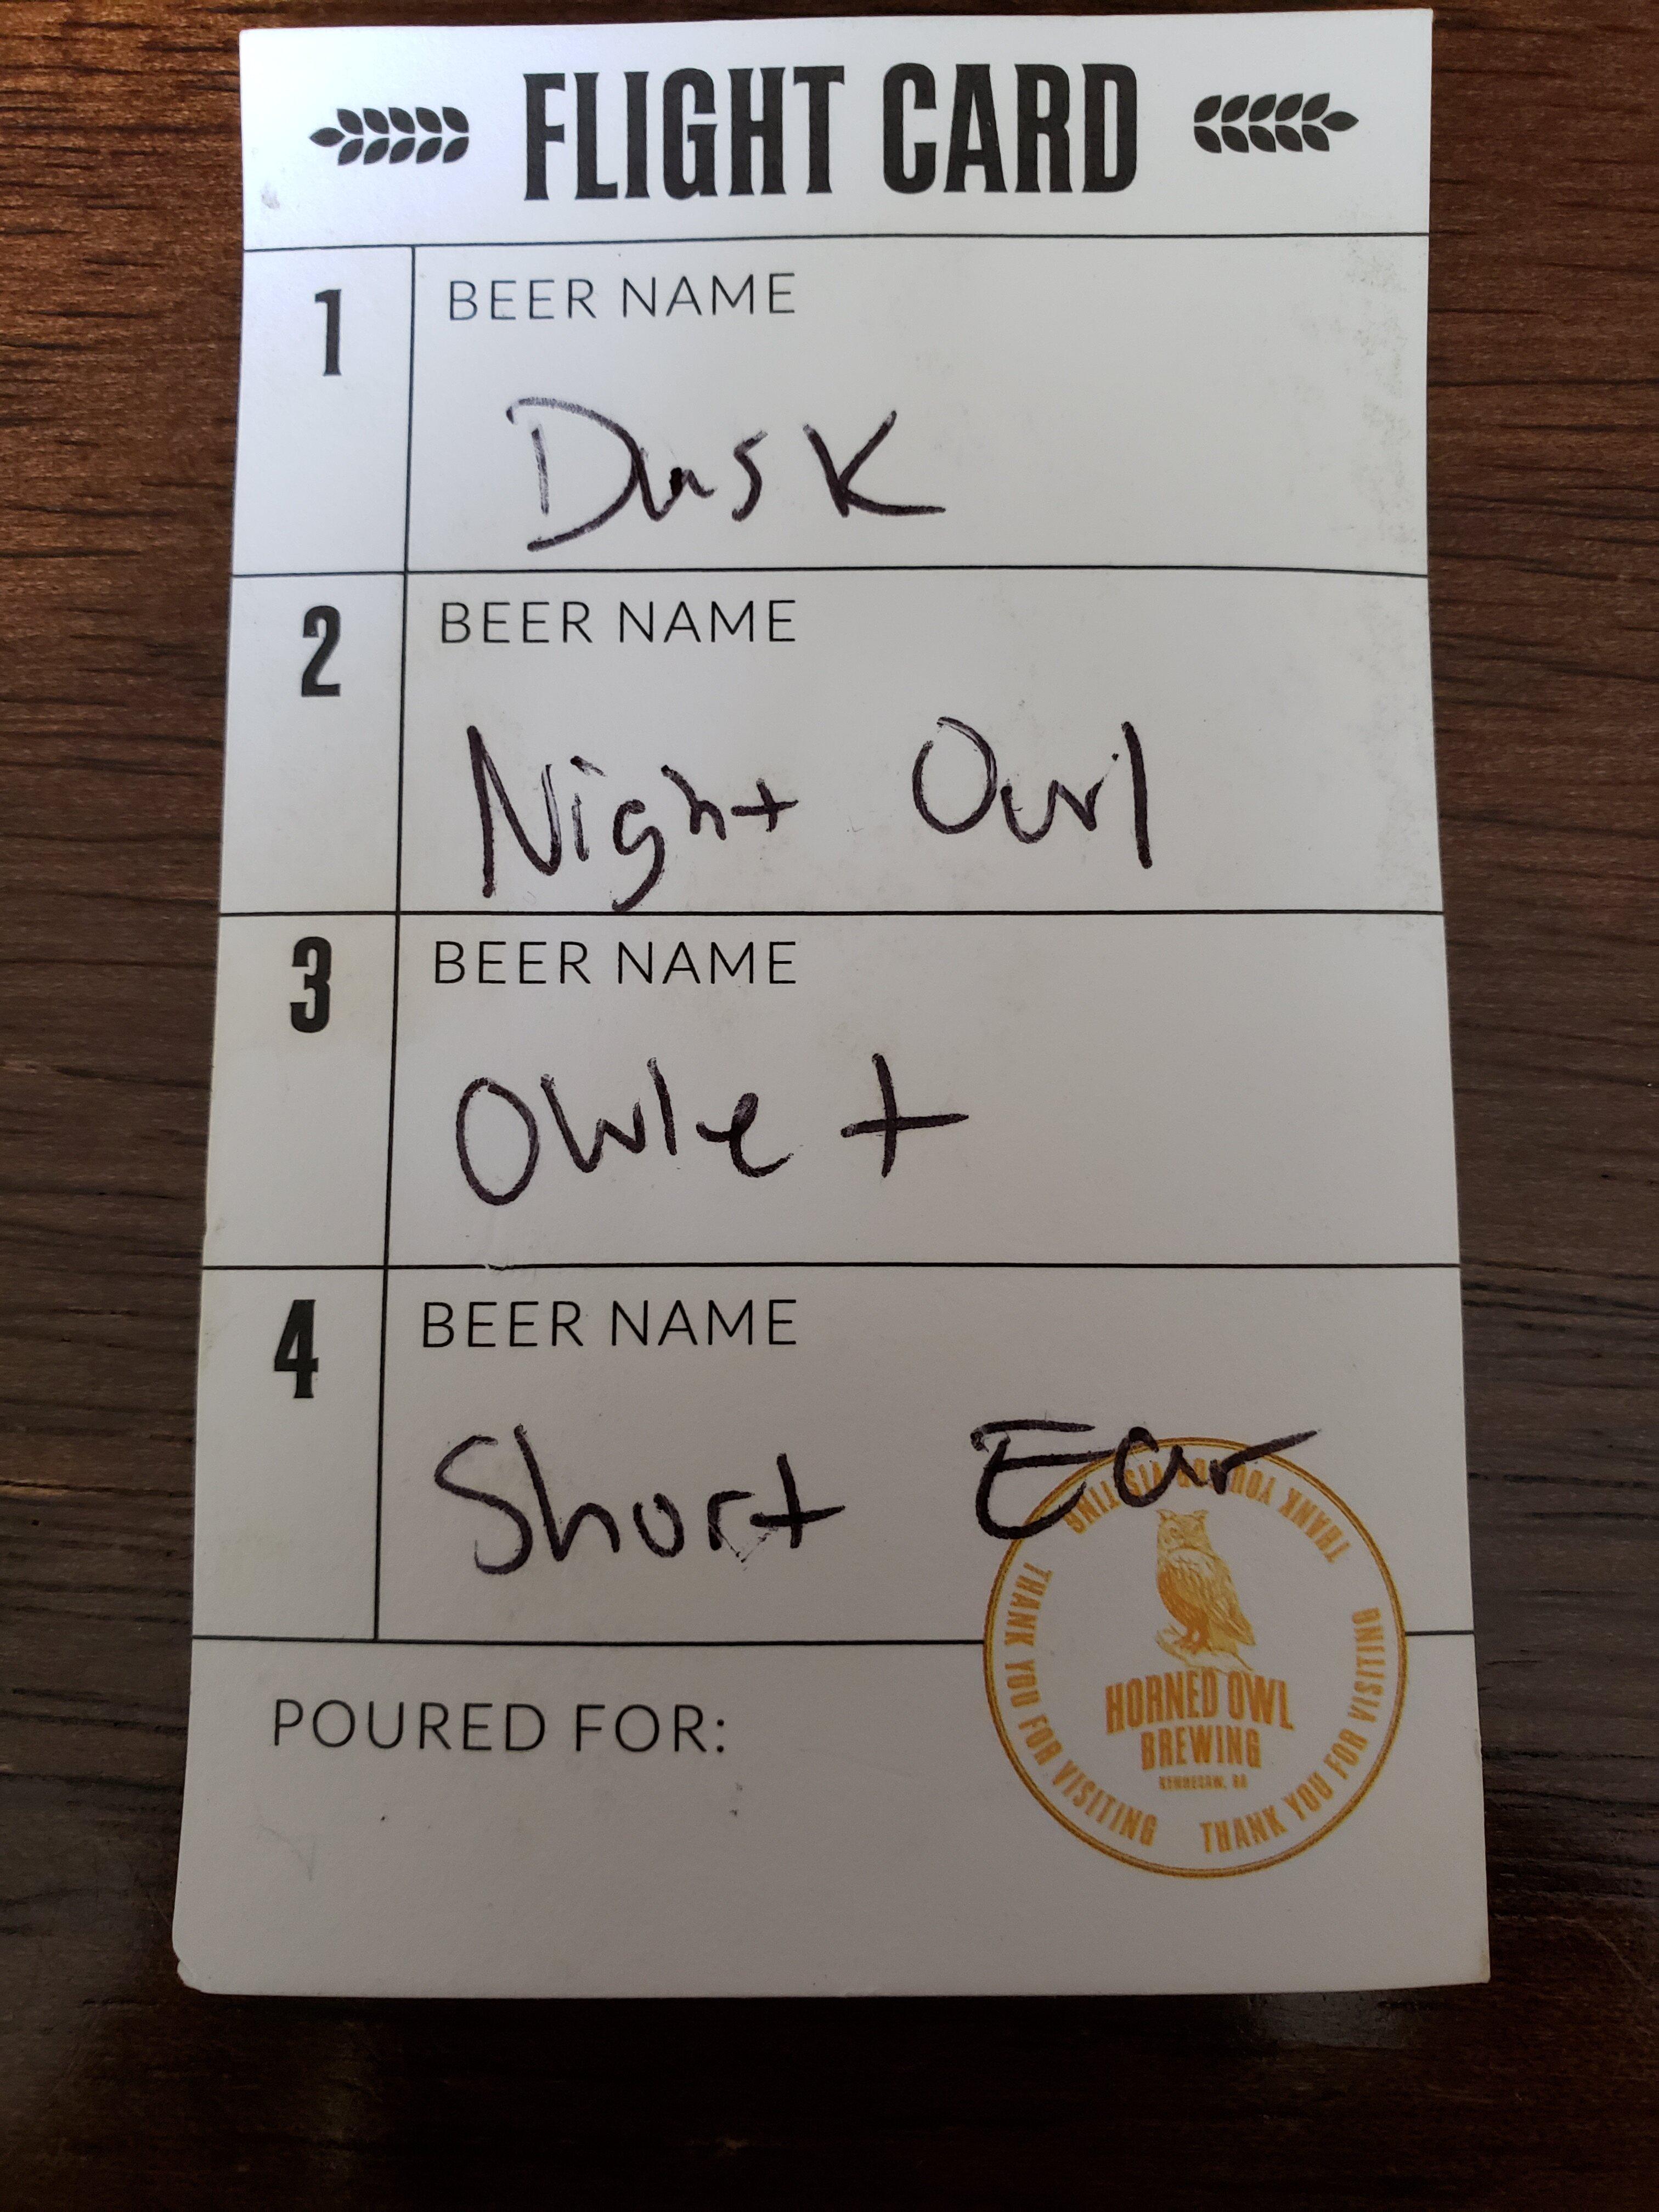 FLIGHT CARD
1
BEER NAME
Dusk
2
BEER NAME
Night Owl
3
BEER NAME
Owlet
4
BEER NAME
Short Ear
POURED FOR:
THANK YOU FOR VISITING
THANK YOU FOR VISITING
THANK YOU FOR VISITING
HORNED OWL
BREWING
KENNESAW, GA